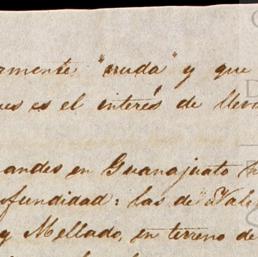 amente "cruda" y que
ues es el interés de llev
andes en Guanajuato h
ofundidad: las de Vale
y Mellado, en terreno de